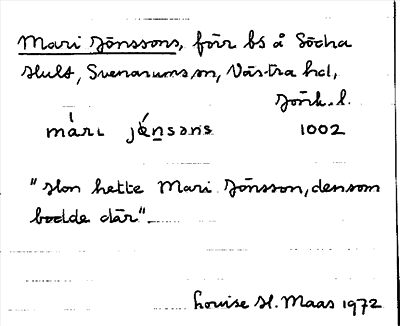 Mari Jönssons, förr bs å Södra
Hult, Svenarums sn, Västra hd,
Jönk. l.
mári jǿnsɘns 1002
"Hon hette Mari Jönsson, den som
bodde där".
Louise H. Maas 1972